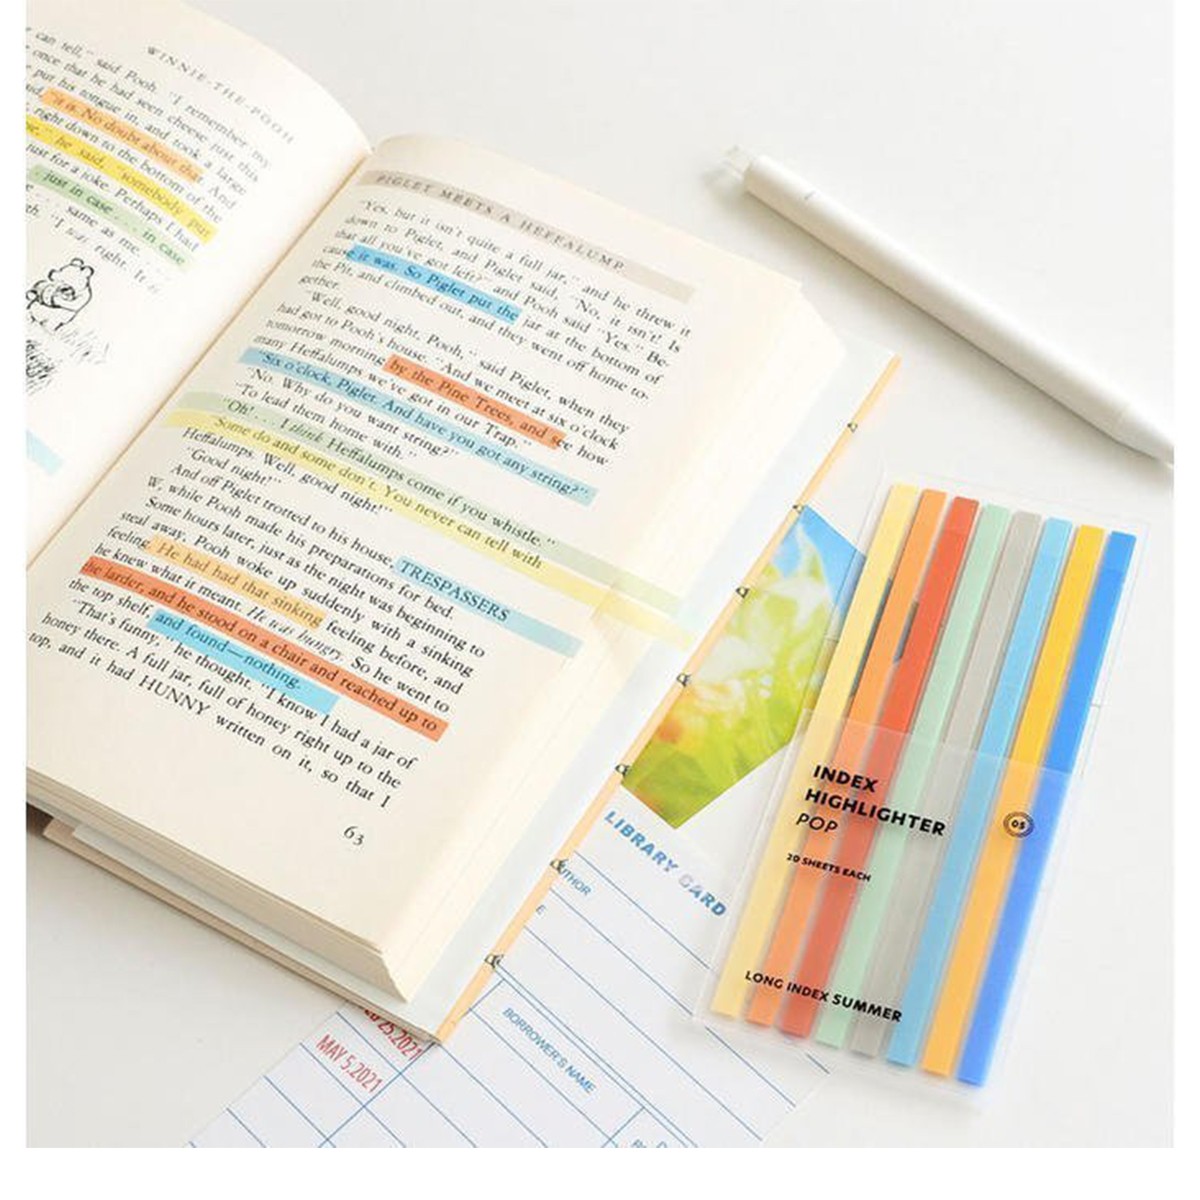 WINNIE-THE-POOH
can tell," said Pooh. "I remember my
once that he had seen cheese just this
put his tongue in, and took a large
"it is. No doubt about that. And
right down to the bottom of the
he said, "somebody put
just for a joke. Perhaps I had
just in case . . . in case
same as me.
"I was right. It is
PIGLET MEETS A HEFFALUMP
"Yes, but it isn't quite a full jar," and he threw it
down to Piglet, and Piglet said, "No, it isn't! Is
that all you've got left?" and Pooh said "Yes." Be-
cause it was. So Piglet put the jar at the bottom of
the Pit, and climbed out, and they went off home to-
gether.
"Well, good night, Pooh," said Piglet, when they
had got to Pooh's house. "And we meet at six o'clock
tomorrow morning by the Pine Trees, and see how
many Heffalumps we've got in our Trap."
"Six o'clock, Piglet. And have you got any string?"
"No. Why do you want string?"
"To lead them home with."
"Oh! . . . I think Heffalumps come if you whistle."
"Some do and some don't. You never can tell with
Heffalumps. Well, good night!"
"Good night!"
And off Piglet trotted to his house TRESPASSERS
W, while Pooh made his preparations for bed.
Some hours later, just as the night was beginning to
steal away, Pooh woke up suddenly with a sinking
feeling. He had had that sinking feeling before, and
he knew what it meant. He was hungry. So he went to
the larder, and he stood on a chair and reached up to
the top shelf, and found—nothing.
"That's funny," he thought. "I know I had a jar of
honey there. A full jar, full of honey right up to the
top, and it had HUNNY written on it, so that I
63
INDEX
HIGHLIGHTER
POP
05
20 SHEETS EACH
LONG INDEX SUMMER
LIBRARY CARD
BORROWER'S NAME
25.2021
MAY 5.2021